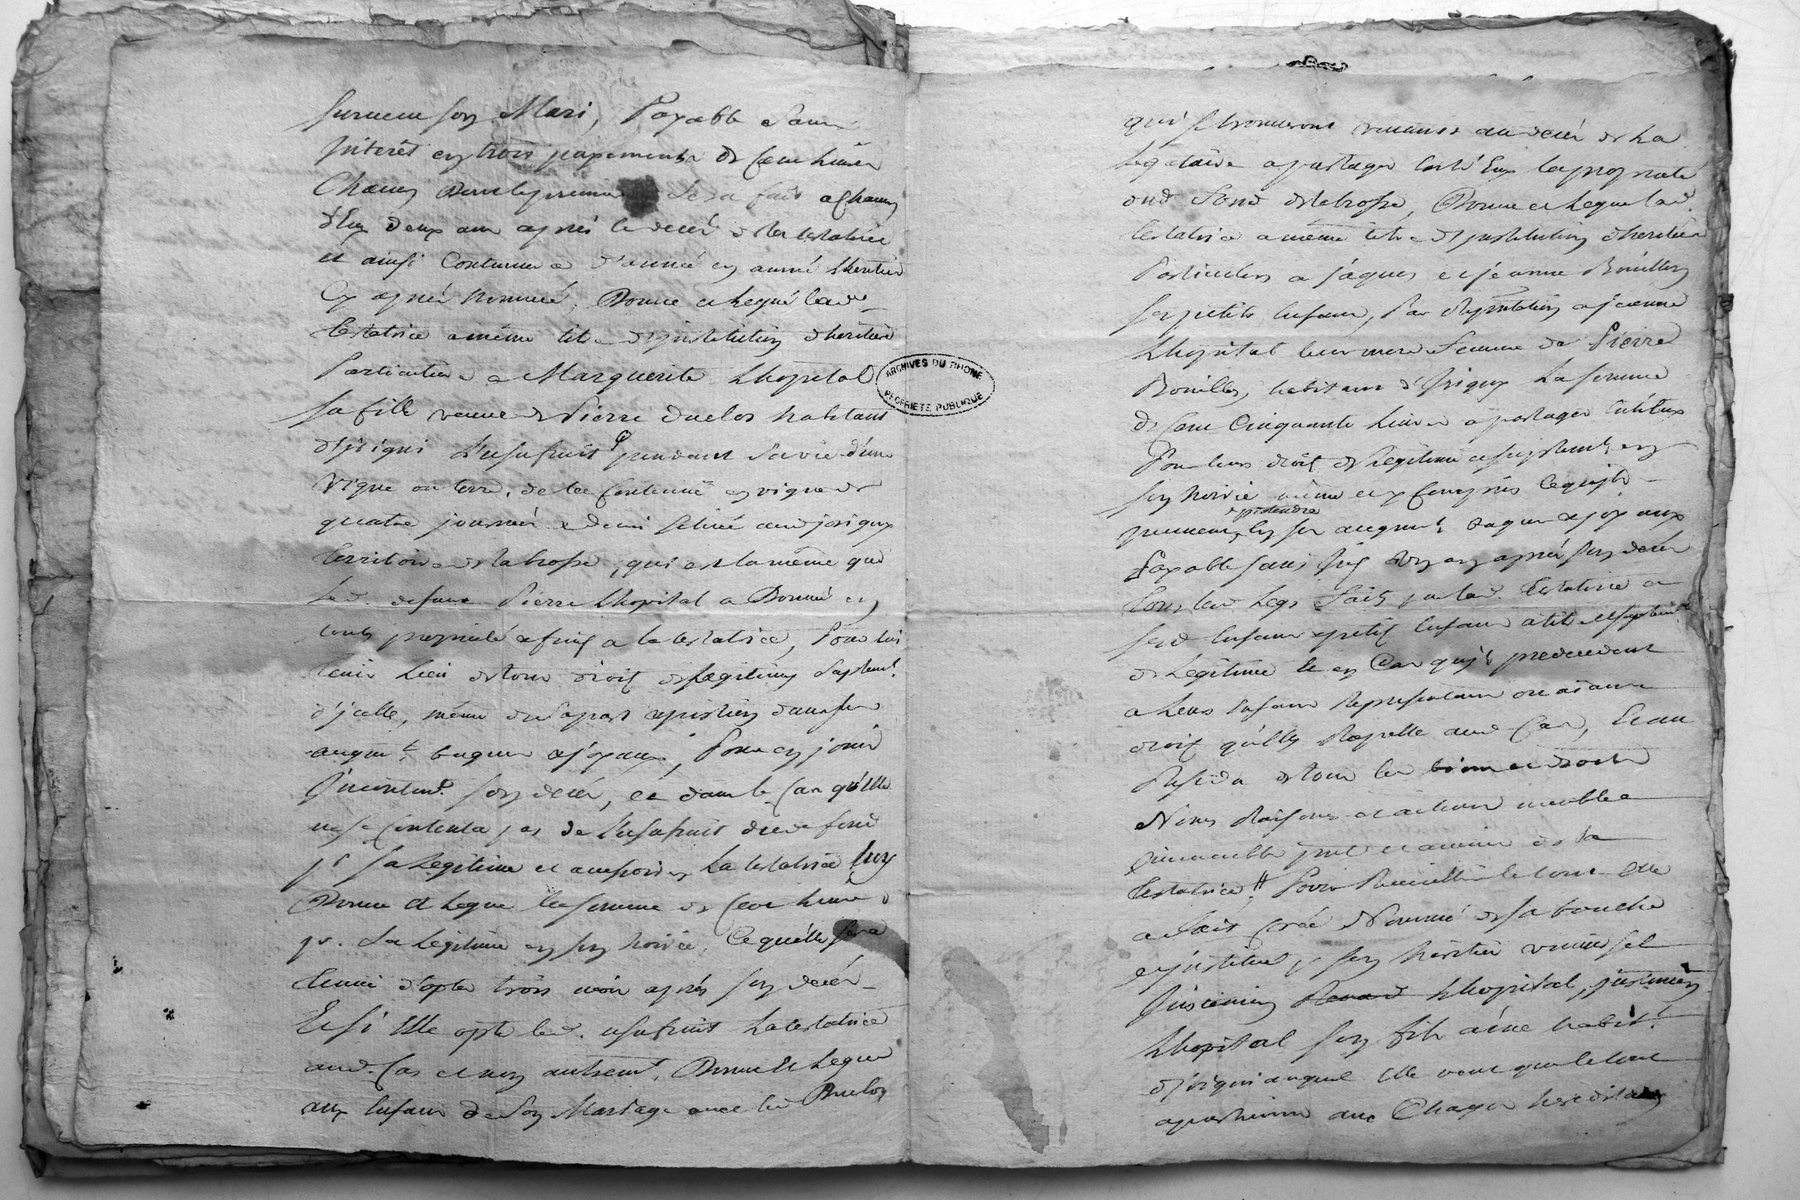 surveur son Mari, Payable sans
Interêt en trois payements de Cent livres
Chacun dont le premier sera fait a Chacun
d'Eux deux ans après le decés de la testatrice
et ainsi Continuer d'année en année L'heritier
Cy après Nommé, Donne et Legue lad.e
testatrice a même titre d'institution d'heritiere
Particuliere a Marguerite Lhopital
sa fille veuve de Pierre Duclos habitant
d'jrigni L'usufruit pendant sa vie d'une
vigne ou terre, de la Contenue en vigne de
quatre journées & demi située aud jrigny
territoire de la brosse, qui est la même que
led. defunt Pierre Lhopital a Donné en
toute proprieté a la testatrice, Pour lui
tenir Lieu de tous droits de Legitime supleme.t
d'jcelle, même de sa part & portion dans ses
augm.t bagues & joyaux, Pour en jouir
Jncontinent son decés, et dans le Cas qu'Elle
ne se Contenta pas de L'usufruit dud. fond
p.r sa Legitime et la testatrice luy
Donne et Legue la somme de Cent livres
p.r sa Legitime en son hoirie, Ce qu'elle sera
tenue d'opter trois mois après son decés
Et si Elle opte led. usufruit La testatrice
aud. Cas et non autrem.t, Donne et Legue
aux Enfans de son Mariage avec led Duclos
ARCHIVES DU RHONE
PROPRIETE PUBLIQUE
qui se trouveront vivants au decés de La
Legataire a partager Entr'Eux la proprieté
dud fond de la brosse, Donne et Legue lad.
testatrice a même titre d'institution d'heritiers
Particuliers a jaques et jeanne Bouillon
ses petits Enfans, Par a jeanne
Lhopital leur mere femme de Pierre
Bouillon, habitant d'jrigny La somme
de Cent Cinquante Livres a partager Entr'Eux
Pour leurs droits de Legitime et suplement en
son hoirie même y Compris Ce qu'ils
peuvent pretendre en ses augment bagues & joyaux
Payable sans un an après son decés
tous les Legs faits par lad. testatrice a
sesd Enfans & petits Enfans a titre
de Legitime Et en Cas qu'ils predecedent
a Leurs Enfans
droit qu'elle Rapelle aud Cas, Et au
Residu de tous les biens et droits
Noms Raisons et actions meubles
Jmmeubles present et avenir de la
testatrice Pour Recueillir le tout Elle
a fait Créé & Nommé de sa bouche
& jnstitué p. son heritier universel
Lhopital, justinien
Lhopital son fils ainé habit.t
d'jrigni auquel Elle veut que le tout
apartienne aux Charges hereditaires